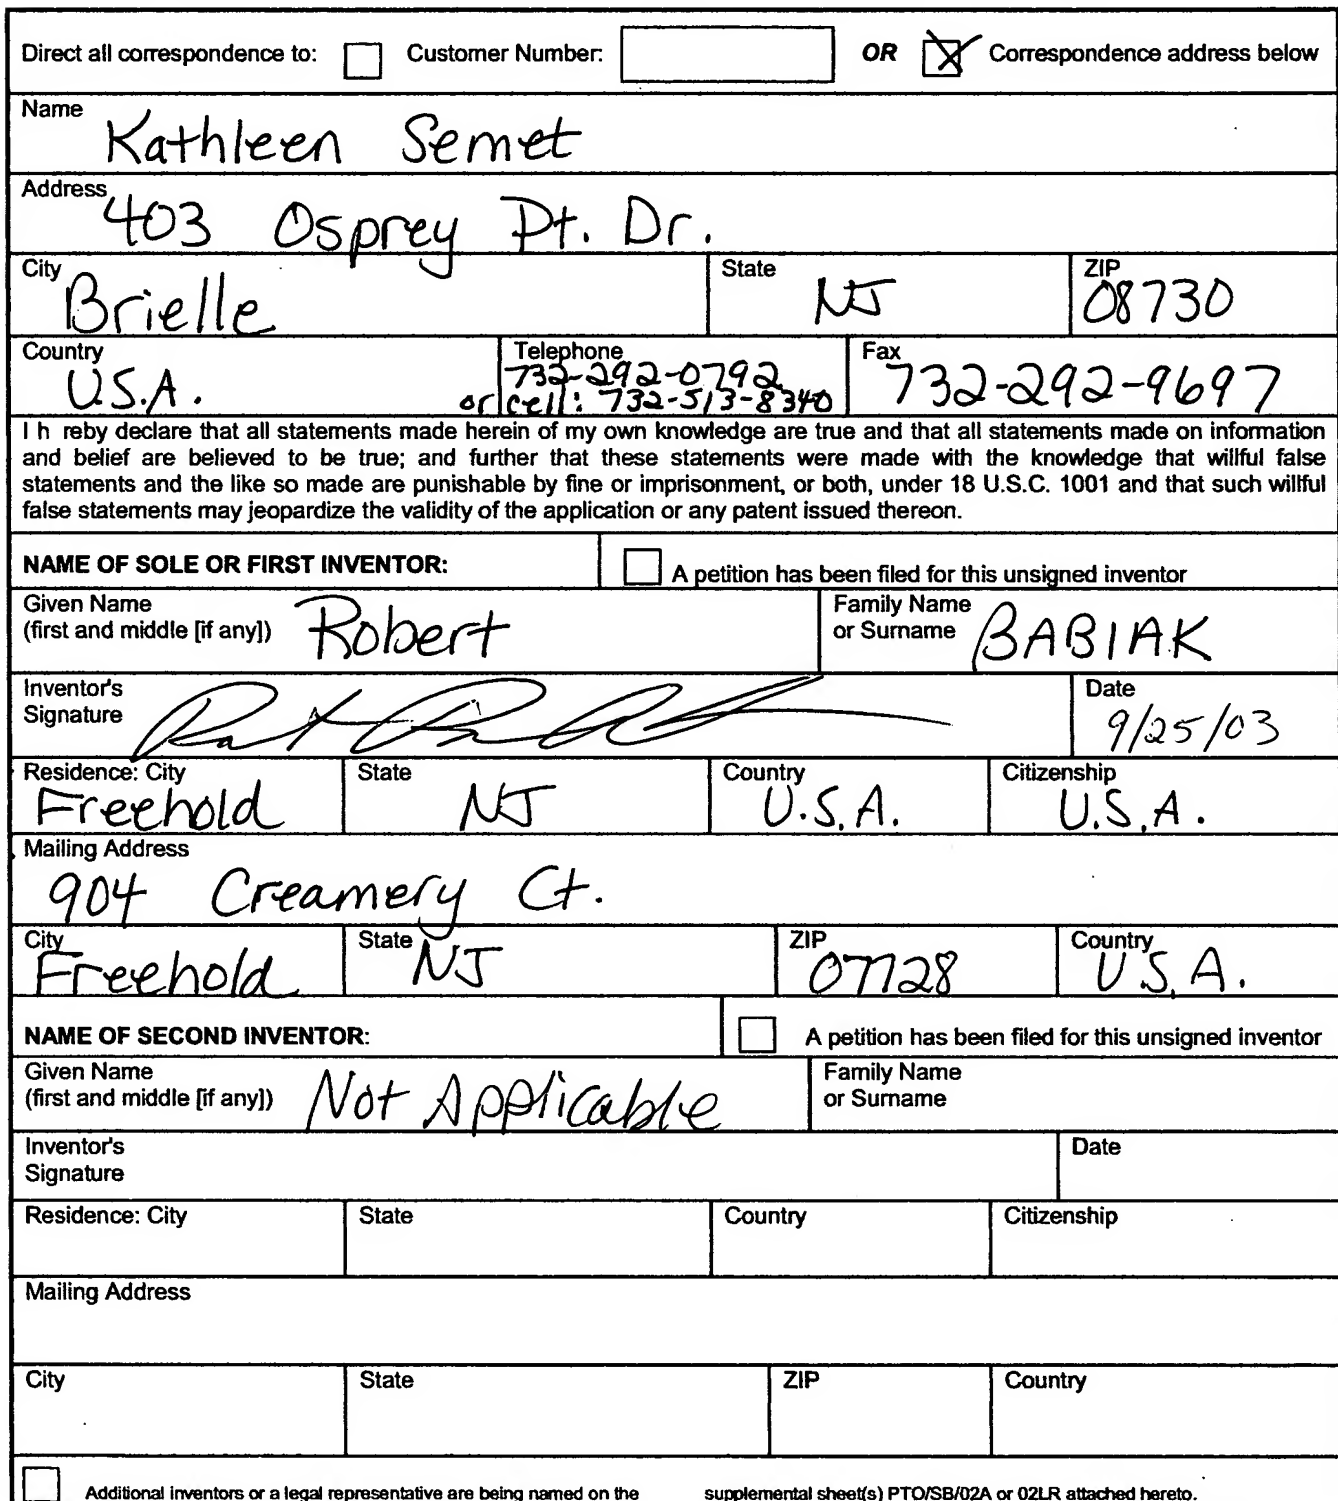 Direct all correspondence to: Customer Number: OR Correspondence address below
Name
Kathleen Semet
Address
403 Osprey Pt. Dr.
City State ZIP
Brielle NJ 08730
Country Telephone Fax
U.S.A. 732-292-0792 732-292-9697
or cell: 732-513-8340
I h reby declare that all statements made herein of my own knowledge are true and that all statements made on information
and belief are believed to be true; and further that these statements were made with the knowledge that willful false
statements and the like so made are punishable by fine or imprisonment, or both, under 18 U.S.C. 1001 and that such willful
false statements may jeopardize the validity of the application or any patent issued thereon.
NAME OF SOLE OR FIRST INVENTOR: A petition has been filed for this unsigned inventor
Given Name Family Name
(first and middle [if any]) Robert or Surname BABIAK
Inventor's Date
Signature 9/25/03
Residence: City State Country Citizenship
Freehold NJ U.S.A. U.S.A.
Mailing Address
904 Creamery Ct.
City State ZIP Country
Freehold NJ 07728 U.S.A.
NAME OF SECOND INVENTOR: A petition has been filed for this unsigned inventor
Given Name Family Name
(first and middle [if any]) Not Applicable or Surname
Inventor's Date
Signature
Residence: City State Country Citizenship
Mailing Address
City State ZIP Country
Additional inventors or a legal representative are being named on the supplemental sheet(s) PTO/SB/02A or 02LR attached hereto.